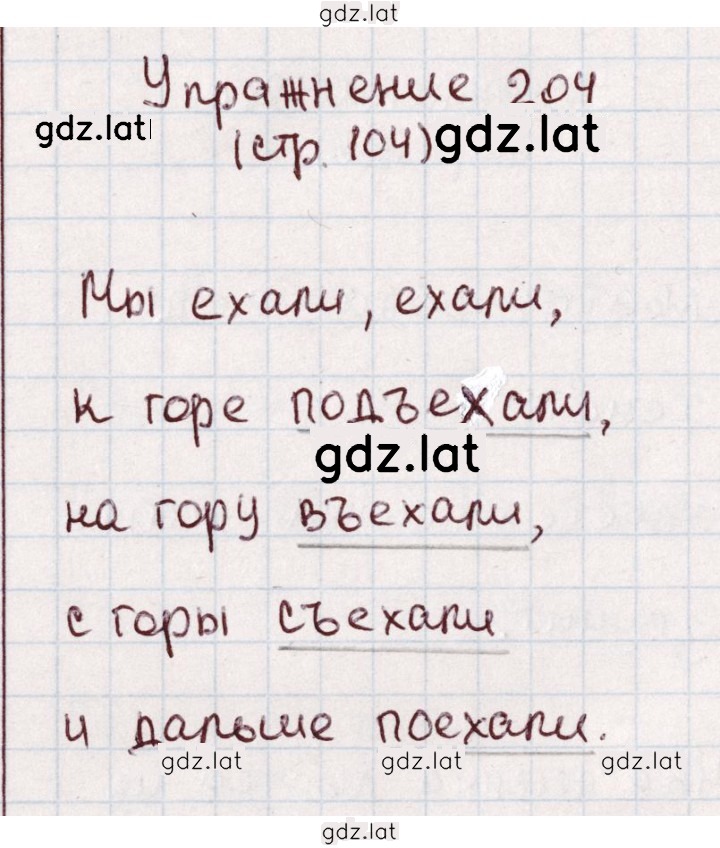 gdz.lat
Упражнение 204
gdz.lat
(стр. 104) gdz.lat
Мы ехали, ехали,
к горе подъехали,
gdz.lat
на гору въехали,
с горы съехали
и дальше поехали.
gdz.lat gdz.lat gdz.lat
gdz.lat